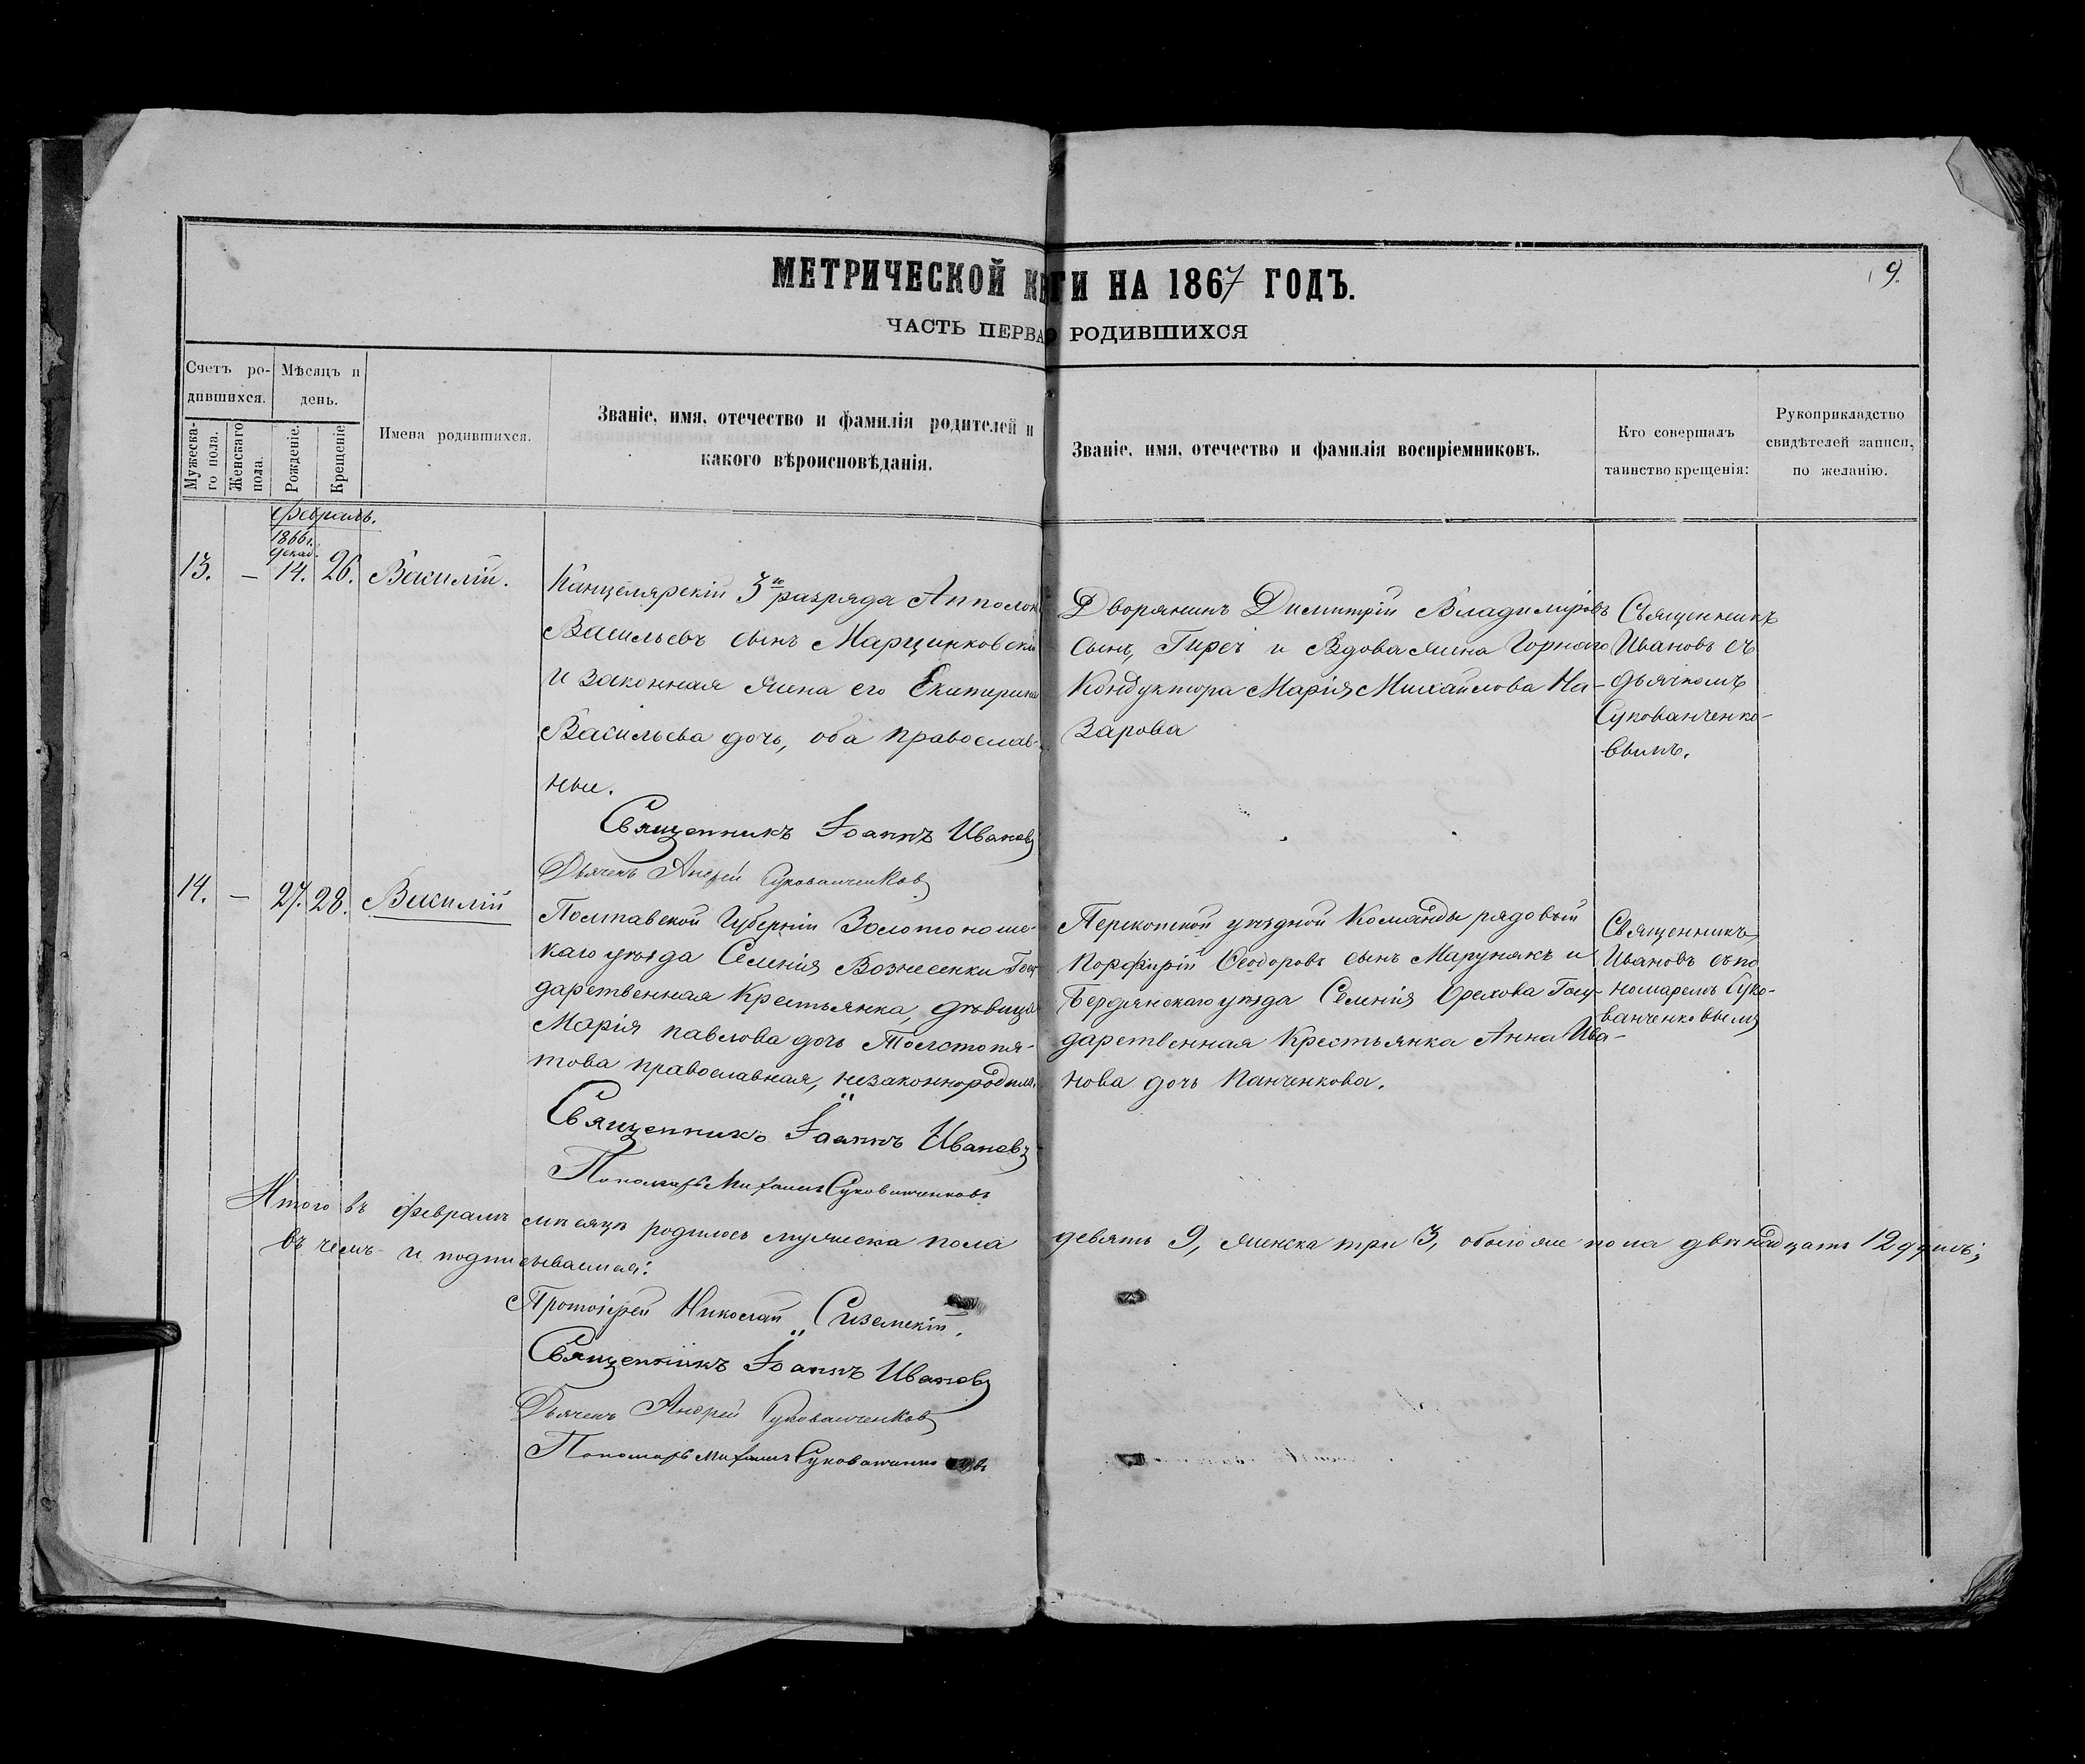 МЕТРИЧЕСКОЙ КНИГИ НА 1867 ГОДЪ.
9.
ЧАСТЬ ПЕРВАЯ О РОДИВШИХСЯ
Счетъ ро-
дившихся.
Мужеска-
го пола.
Женскаго
пола.
Мѣсяцъ и
день.
Рожденіе.
Крещеніе
Имена родившихся.
Званіе, имя, отечество и фамилія родителей и
какого вѣроисповѣданія.
Званіе, имя, отечество и фамилія воспріемниковъ.
Кто совершалъ
таинство крещенія:
Рукоприкладство
свидѣтелей записи,
по желанію.
Февраль.
1866 г.
Декаб.
13. — 14. 26. Василій.
Канцелярскій 3го разряда Апполон
Васильевъ сынъ Марцинковскій
и законная жена его Екатерина
Васильева дочь, оба православ-
ные.
Священникъ Іоаннъ Ивановъ
Дьячекъ Андрей Сукованченковъ
Дворянинъ Димитрій Владиміровъ
сынъ, Гиреч и Вдова жена Горнаго
Кондуктора Марія Михайлова На-
зарова
Священникъ
Ивановъ съ
дьячкомъ
Сукованченко-
вымъ.
14. — 27. 28. Василій
Полтавской Губерніи Золотоношс-
каго уѣзда Селенія Вознесенки Госу
дарственная Крестьянка, дѣвица
Марія Павлова дочь Толстопя-
това православная, незаконнорожден.
Священникъ Іоаннъ Ивановъ
Пономарь Михаилъ Сукованченковъ
Перекопской уѣздной Команды рядовый
Порфирій Ѳеодоровъ сынъ Марунякъ и
Бердянскаго уѣзда Селенія Орехова Госу-
дарственная Крестьянка Анна Ива-
нова дочь Панченкова.
Священникъ
Ивановъ съ по
номаремъ Суко-
ванченковымъ
Итого въ февралѣ мѣсяцѣ родилось мужеска пола девять 9, женска три 3, обоего же пола двѣнадцать 12 душъ;
въ чемъ и подписываемся:
Протоіерей Николай Сиземскій.
Священникъ Іоаннъ Ивановъ
Дьячекъ Андрей Сукованченковъ
Пономарь Михаилъ Сукованченковъ